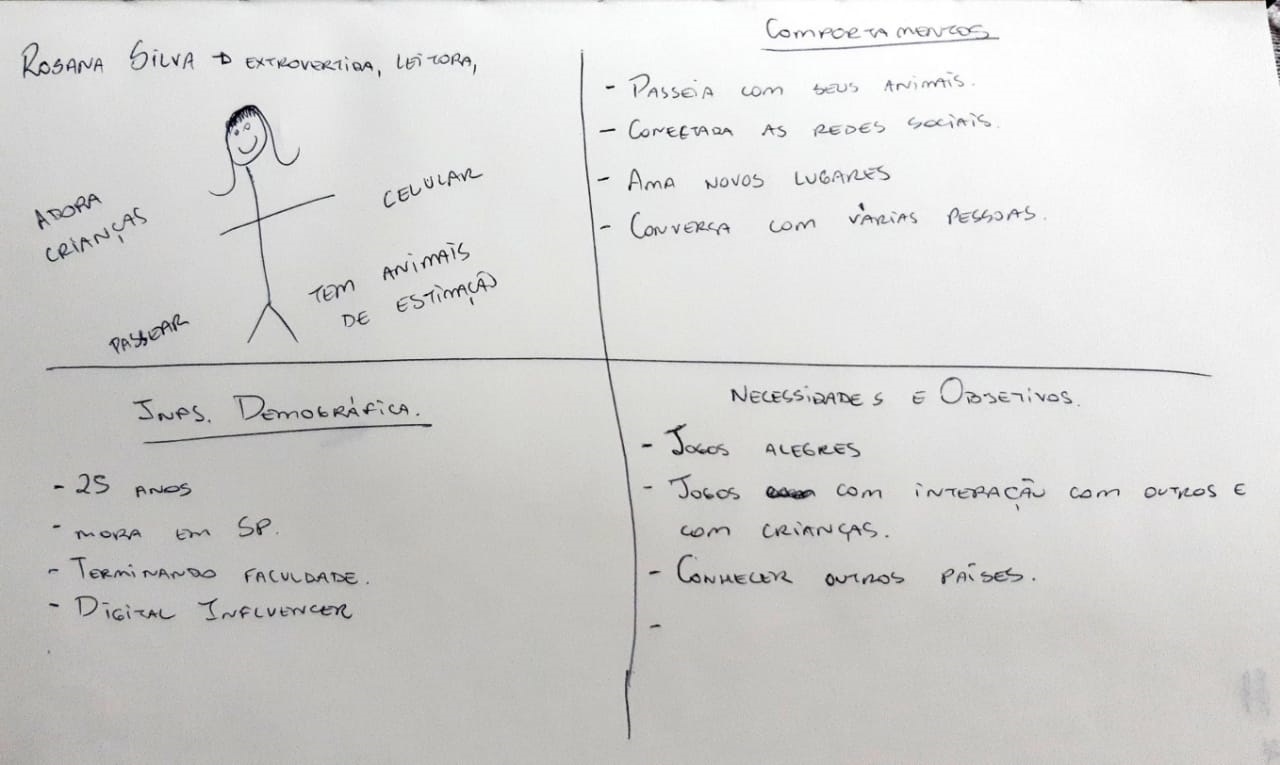 ROSANA SILVA → EXTROVERTIDA, LEITORA,
ADORA
CRIANÇAS
CELULAR
TEM ANIMAIS
DE ESTIMAÇÃO
PASSEAR
COMPORTAMENTOS
- PASSEIA COM SEUS ANIMAIS.
- CONECTADA AS REDES SOCIAIS.
- AMA NOVOS LUGARES
- CONVERSA COM VÁRIAS PESSOAS.
INFS. DEMOGRÁFICA.
- 25 ANOS
- MORA EM SP.
- TERMINANDO FACULDADE.
- DIGITAL INFLUENCER
NECESSIDADES E OBJETIVOS.
- JOGOS ALEGRES
- JOGOS COM INTERAÇÃO COM OUTROS E
COM CRIANÇAS.
- CONHECER OUTROS PAÍSES.
-